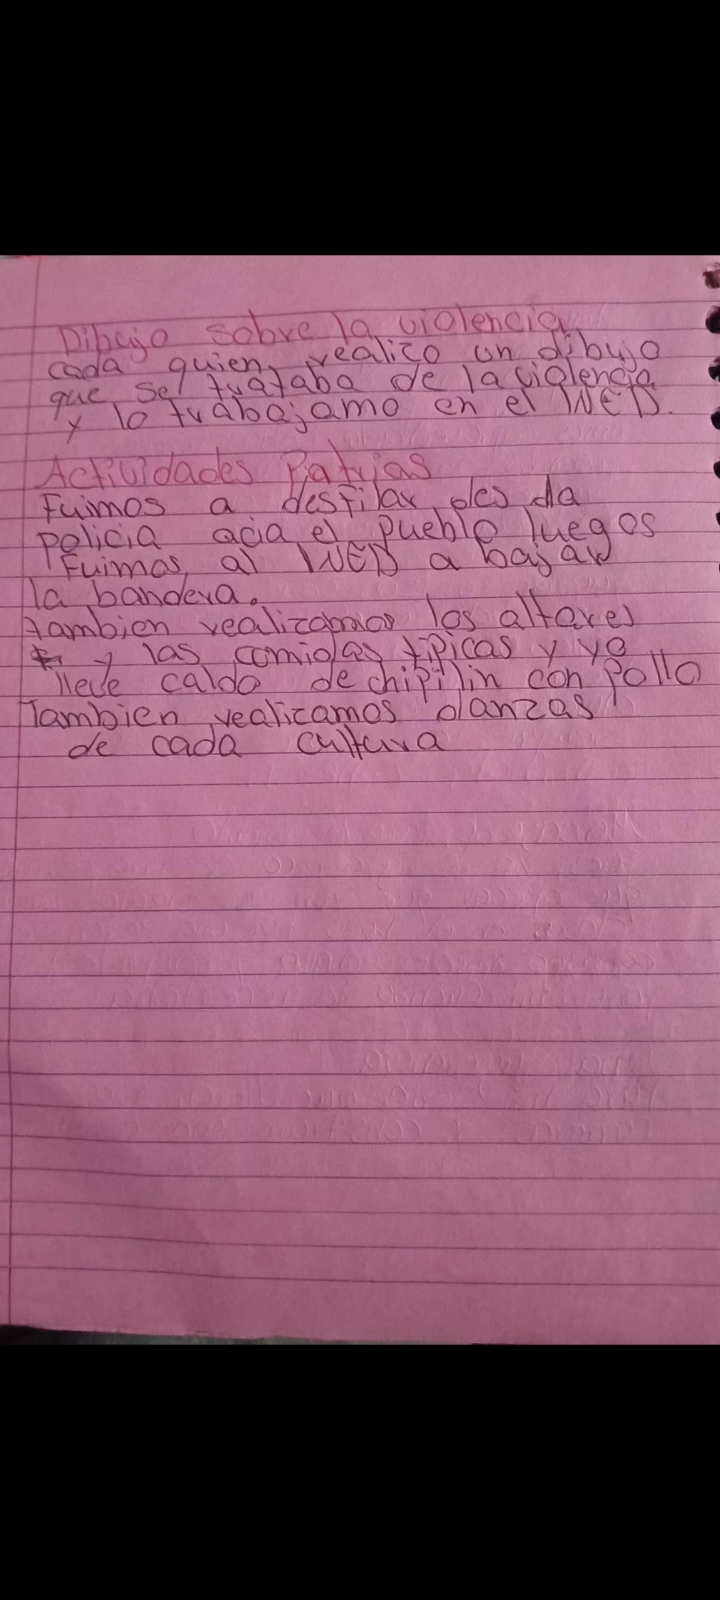 Dibujo sobre la violencia
cada quien realizo un dibujo
que se trataba de la violencia
y lo trabajamo en el INED.
Actividades Patrias
Fuimos a desfilar des da
policia acia el pueblo luegos
Fuimos al INED a bajar
la bandera.
tambien realizamos los altares
y las comidas tipicas y yo
lleve caldo de chipilin con pollo
Tambien realizamos danzas
de cada cultura